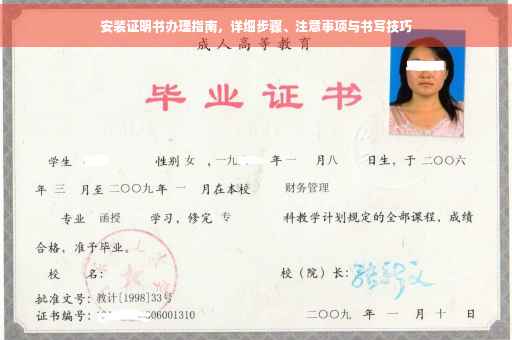 安装证明书办理指南，详细步骤、注意事项与书写技巧
成人高等教育
毕业证书
学生 性别 女 ，一九 年 一 月八 日生，于 二〇〇六
年 三 月至 二〇〇九年 一 月在本校 财务管理
专业 函授 学习，修完 专 科教学计划规定的全部课程，成绩
合格，准予毕业。
校 名： 校（院）长：
批准文号：教计[1998]33号
证书编号： 06001310 二〇〇九 年 一 月 十 日